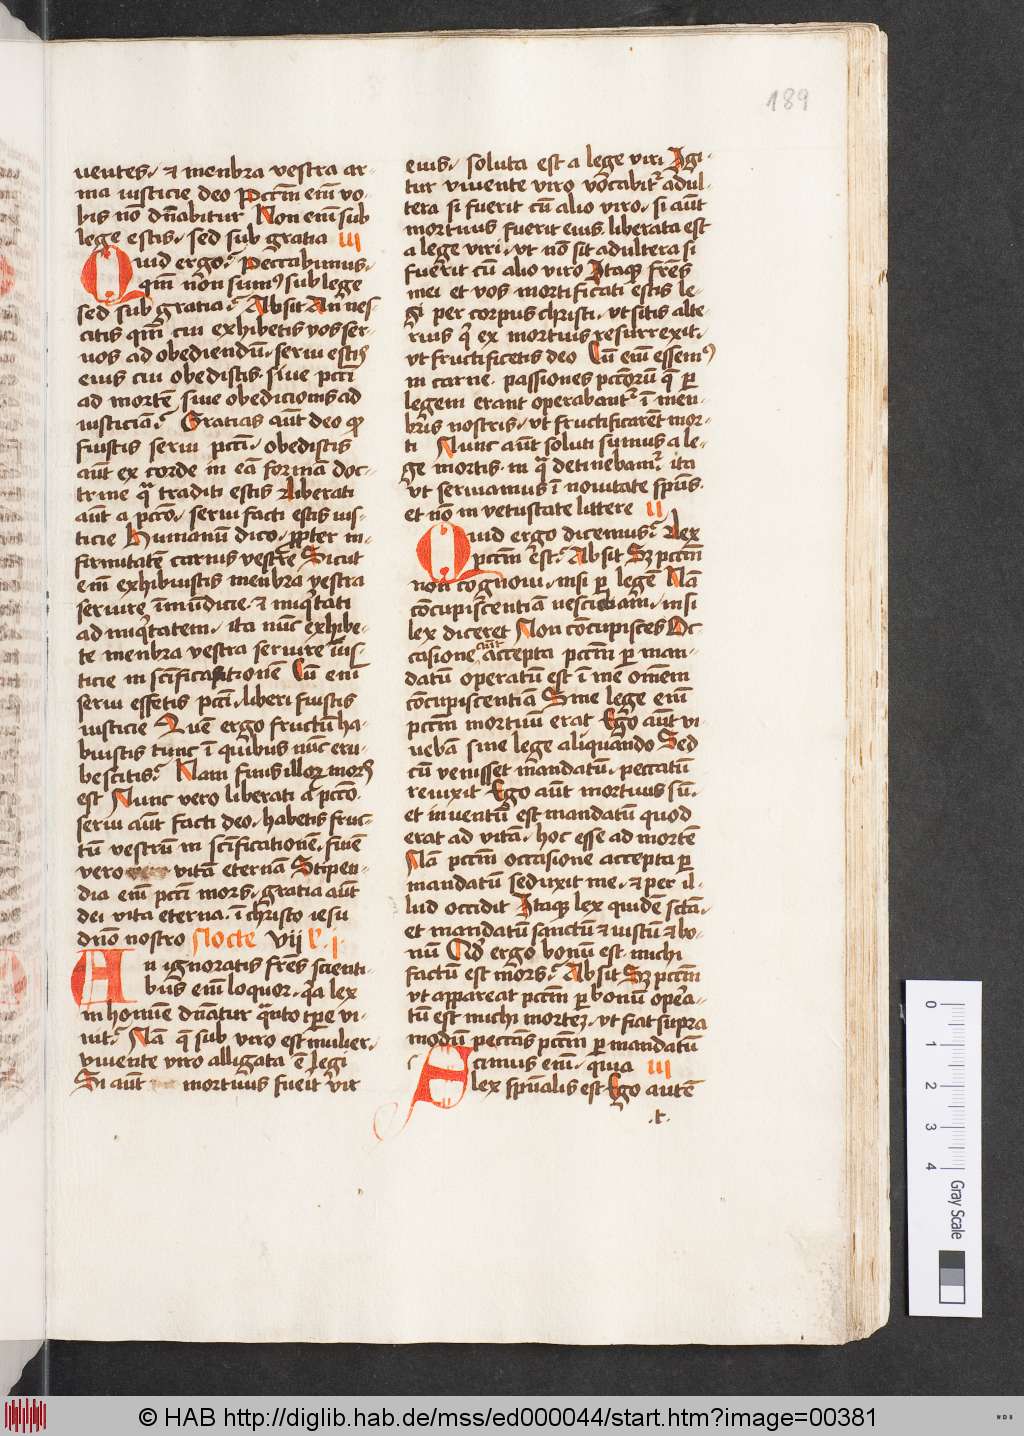 189
uentes. et menbra vestra ar-
ma iusticie deo Pctm̄ em̄ vo-
bis nō dn̄abitur Non em̄ sub
lege estis. sed sub gratia III
Quid ergo? peccabimus.
qm̄ non sumꝰ sub lege
sed sub gratia? Absit An nes-
citis qm̄ cui exhibetis vos ser-
uos ad obediendū. serui estis
eius cui obedistis. siue pcti
ad mortē siue obedicionis ad
iusticiā? Gratias aūt deo ꝙ
fuistis serui pcti. obedistis
aūt ex corde in eā formā doc-
trine q̄ traditi estis Liberati
aūt a pctō. serui facti estis ius-
ticie Humanū dico. ꝓpter in-
firmitatē carnis vestre Sicut
em̄ exhibuistis menbra vestra
seruire īmūdicie. et iniqͥtati
ad iniqͥtatem. ita nūc exhibe-
te menbra vestra seruire ius-
ticie in scīficationē Cū em̄
serui essetis pcti. liberi fuistis
iusticie Quē ergo fructū ha-
buistis tunc ī quibus nūc eru-
bescitis? Nam finis illoꝝ mors
est Nunc vero liberati a pctō.
serui aūt facti deo. habetis fruc-
tū vestrū in scīficationē. finē
vero vitā eternā Stipen-
dia em̄ pcti mors. gratia aūt
dei vita eterna. ī christo iesu
dnō nostro Nocte VII l. j.
An ignoratis frēs scienti-
bus em̄ loquor. qͥa lex
in homine dn̄atur qͣnto tpe vi-
uit? Nā q̄ sub viro est mulier.
viuente viro alligata ē legi
Si aūt mortuus fuerit vir
eius. soluta est a lege viri Igi-
tur viuente viro vocabitᷣ adul-
tera si fuerit cū alio viro. si aūt
mortuus fuerit eius. liberata est
a lege viri. vt nō sit adultera si
fuerit cū alio viro Itaqꝫ frēs
mei et vos mortificati estis le-
gi per corpus christi. vt sitis alte
rius qͥ ex mortuis resurrexit.
vt fructificetis deo Cū em̄ essemꝰ
in carne. passiones pctōrū q̄ ꝑ
legem erant operabantᷣ ī men-
bris nostris. vt fructificarēt mor-
ti Nunc aūt soluti sumus a le-
ge mortis. in qͣ detinebamᷣ. ita
vt seruiamus ī nouitate spūs.
et nō in vetustate littere II
Quid ergo dicemus? Lex
pctm̄ est? Absit Sꝫ pctm̄
non cognoui. nisi ꝑ legē Nā
cōcupiscentiā nesciebam. nisi
lex diceret Non cōcupisces Oc-
casione aūt accepta pctm̄ ꝑ man-
datū operatū est ī me omēm
cōcupiscentiā Sine lege em̄
pctm̄ mortuū erat Ego aūt vi-
uebā sine lege aliquando Sed
cū venisset mandatū. peccatū
reuixit Ego aūt mortuus sū.
et inuentū est mandatū quod
erat ad vitā. hoc esse ad mortē
Nā pctm̄ occasione accepta ꝑ
mandatū seduxit me. et per il-
lud occidit Itaqꝫ lex quidē scta.
et mandatū sanctū et iustū et bo-
nū Qd̓ ergo bonū est. michi
factū est mors? Absit Sꝫ pctm̄
vt appareat pctm̄ ꝑ bonū opera-
tū est michi mortēꝫ. vt fiat supra
modū peccans pctm̄ ꝑ mandatū
Scimus em̄. quia III
lex spūalis est Ego autē
.t.
0
1
2
3
4
Gray Scale
© HAB http://diglib.hab.de/mss/ed000044/start.htm?image=00381